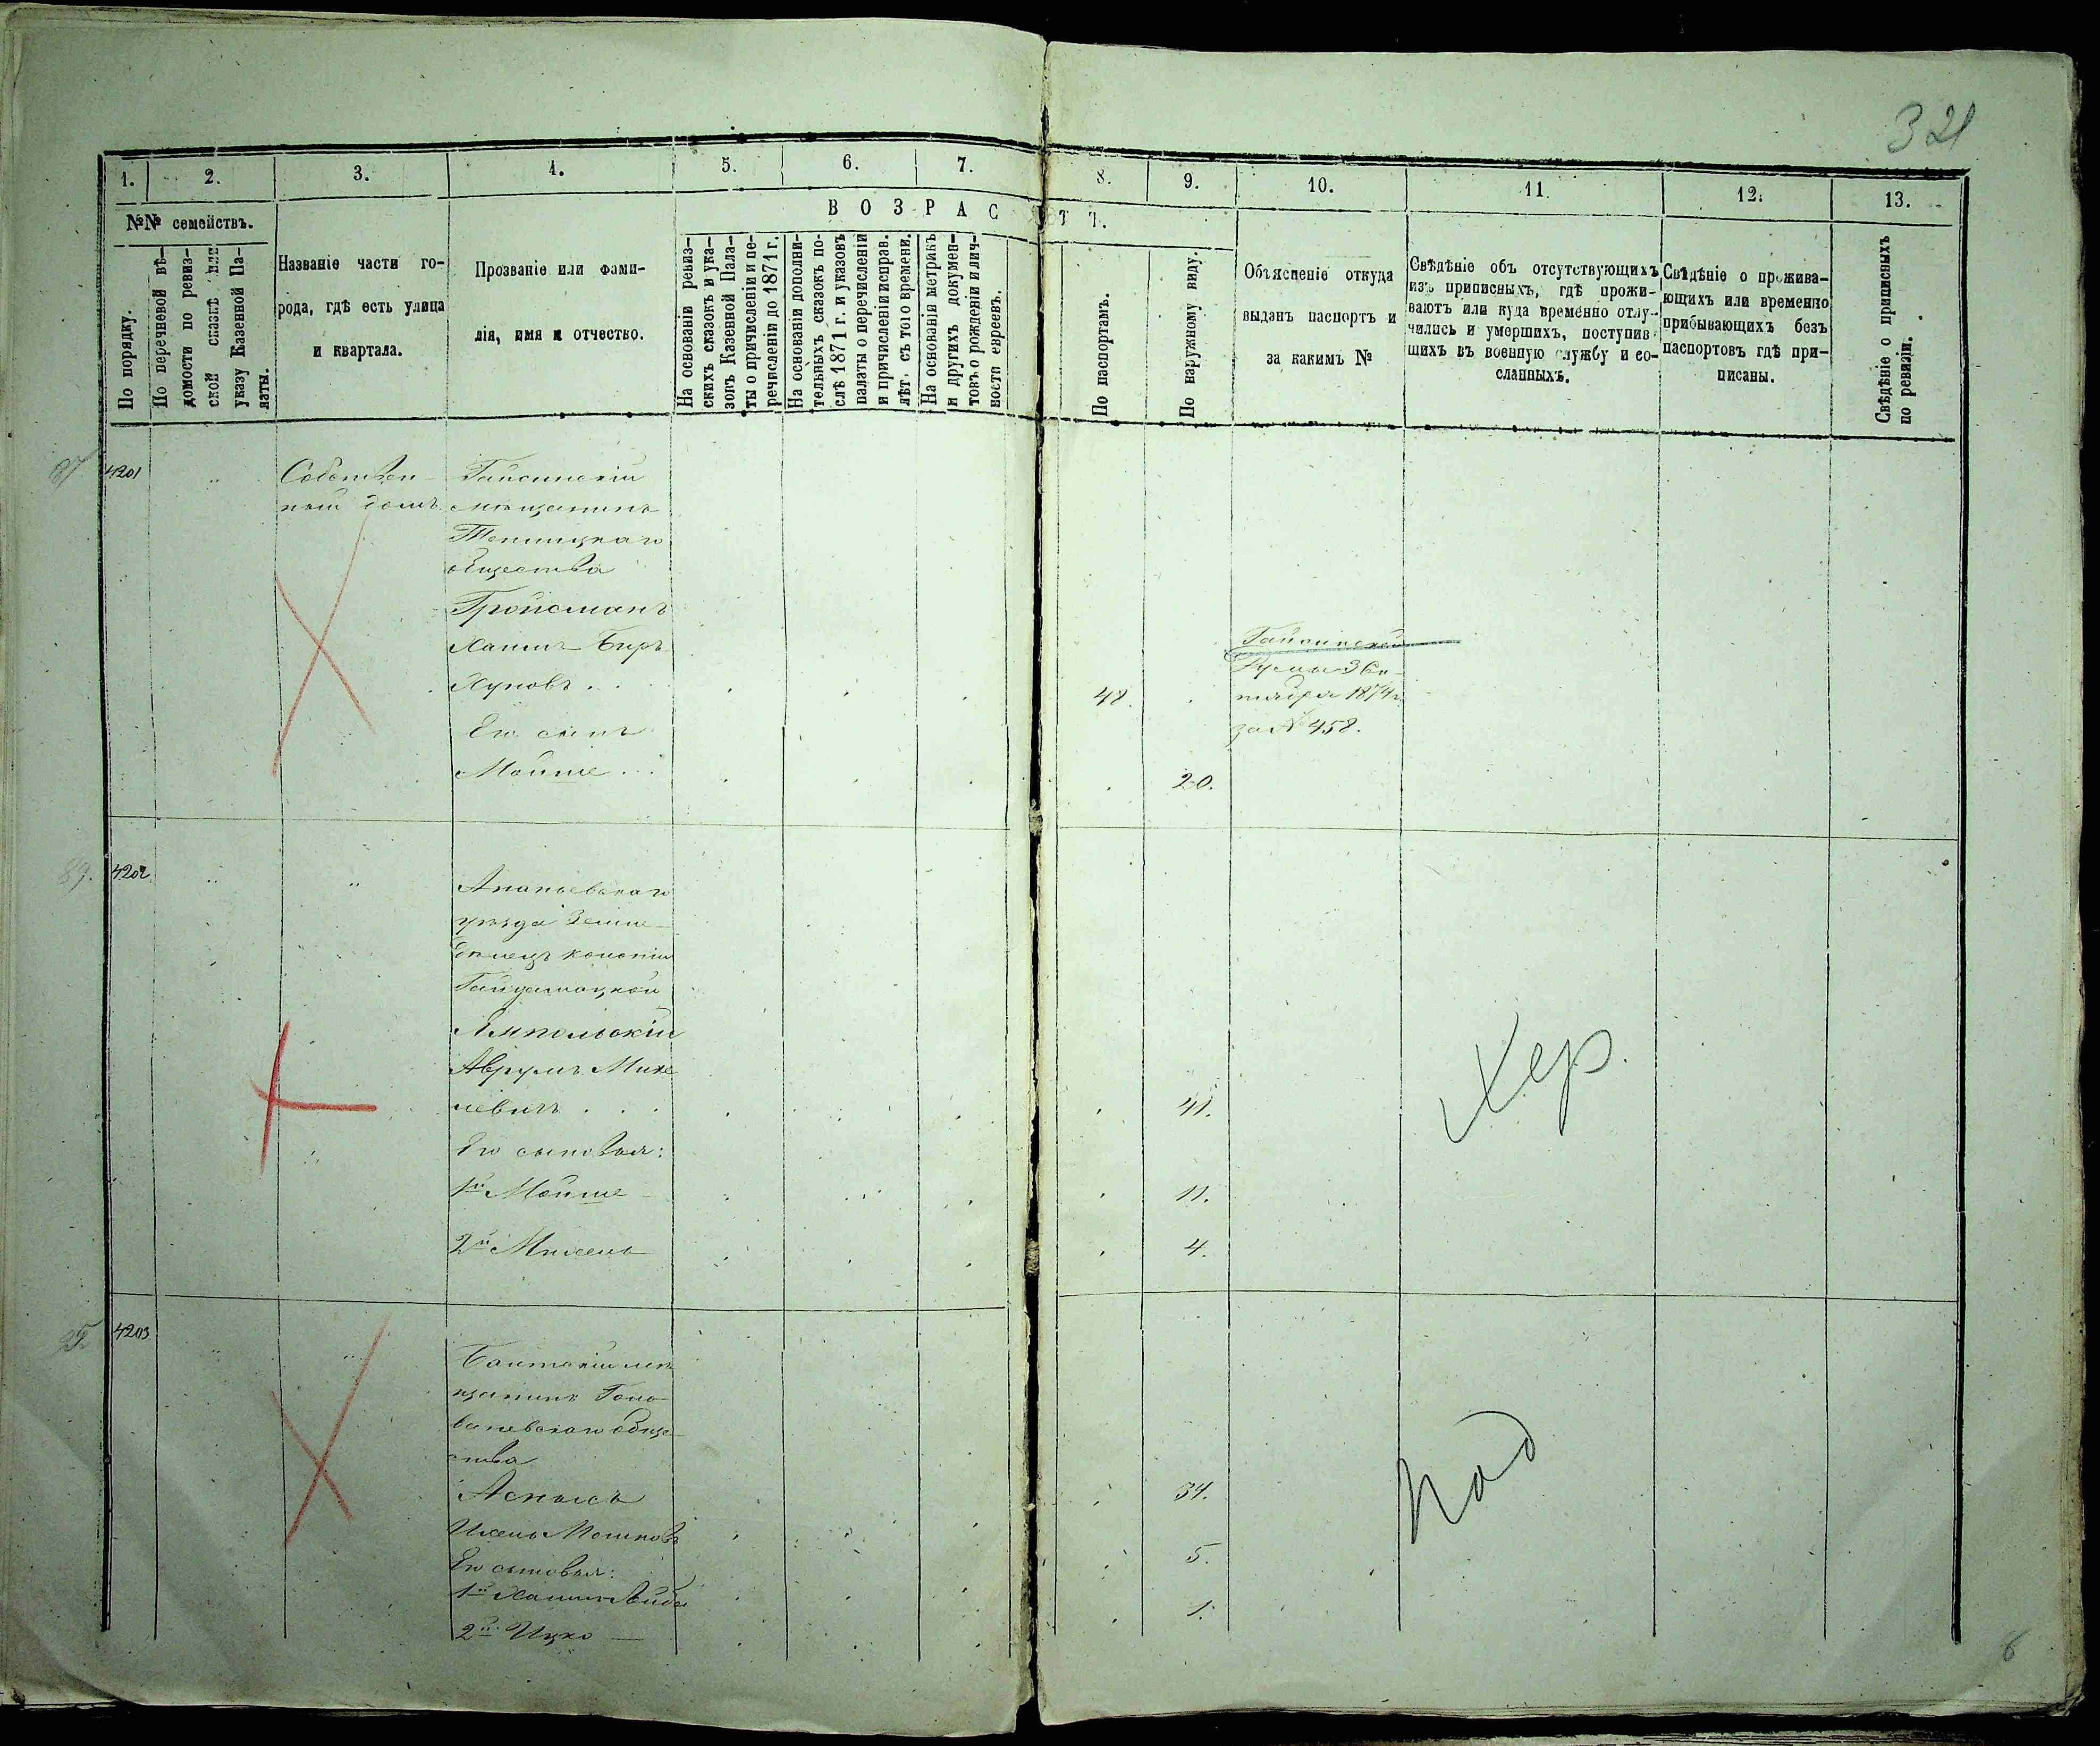 321
1. 2. 3. 4. 5. 6. 7. 8. 9. 10. 11. 12. 13.
№№ семействъ.
По порядку.
По перечневой вѣ-
домости по ревиз-
ской сказкѣ или
указу Казенной Па-
латы.
Названіе части го-
рода, гдѣ есть улица
и квартала.
Прозваніе или фами-
лія, имя и отчество.
ВОЗРАСТЪ.
На основаніи ревиз-
скихъ сказокъ и ука-
зовъ Казенной Пала-
ты о причисленіи и пе-
речисленіи до 1871 г.
На основаніи дополни-
тельныхъ сказокъ по-
слѣ 1871 г. и указовъ
палаты о перечисленіи
и причисленіи исправ.
лѣт. съ того времени.
На основаніи метрикъ
и другихъ докумен-
товъ о рожденіи и лич-
ности евреевъ.
По паспортамъ.
По наружному виду.
Объясненіе откуда
выданъ паспортъ и
за какимъ №
Свѣдѣніе объ отсутствующихъ
изъ приписныхъ, гдѣ прожи-
ваютъ или куда временно отлу-
чились и умершихъ, поступив-
щихъ въ военную службу и со-
сланныхъ.
Свѣдѣніе о прожива-
ющихъ или временно
прибывающихъ безъ
паспортовъ гдѣ при-
писаны.
Свѣдѣніе о приписныхъ
по ревизіи.
87 4201
Собствен-
ный домъ
Гайсинскій
мѣщанинъ
Теплицкаго
общества
Гройсманъ
Хаимъ-Беръ
Хуновъ . . 48.
Гайсинской
Думы 3 Сен-
тября 1874 г.
за № 458.
Его сынъ
Мойше . . . 20.
89. 4202
Ананьевскаго
уѣзда Земле-
дѣлецъ колоніи
Гайдамацкой
Ямпольскій
Аврумъ Михе
левичъ . . . 41.
Хер.
Его сыновья:
1й Мойше 11.
2й Михель 4.
4203
Балтскій мѣ
щанинъ Голо-
ваневскаго обще
ства
Асписъ 34.
Ихель Мошковъ
Под
Его сыновья: 5.
1й Хаимъ Лейба
2й Ицко 1.
6